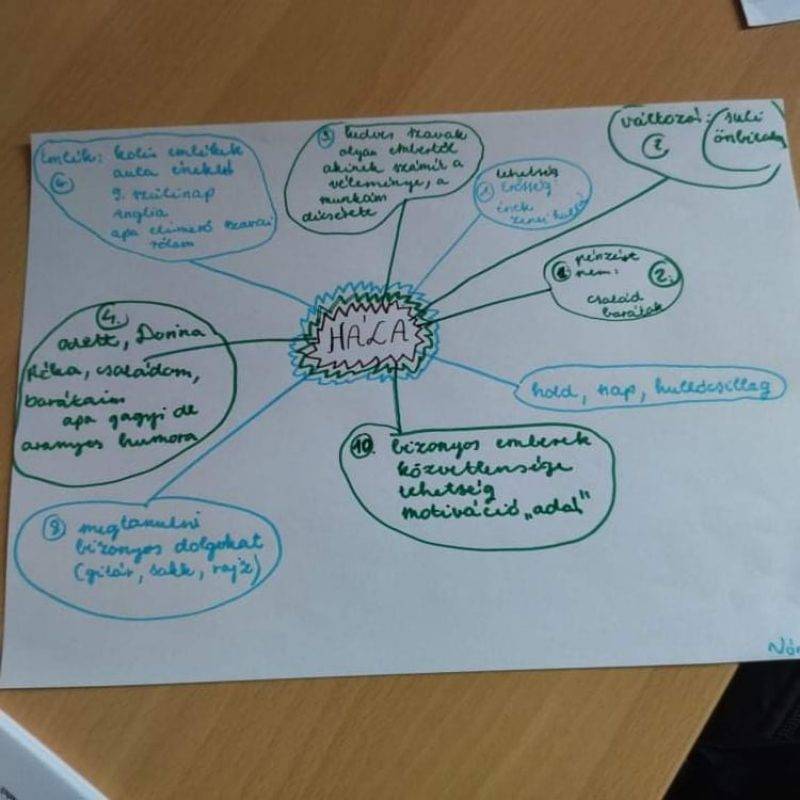 Emlék: kolis emlékek
aula éneklő
6.
9. szülinap
Anglia
apa elismerő szavai
rólam
5 kedves szavak
olyan embertől
akinek számít a
véleménye, a
munkám
dicsérete
tehetség
1 erősség
ének
zenei hallás
változás: suli
7. önbizalom
pénzért
nem: 2.
család
barátok
HÁLA
4.
Anett, Dorina
Réka, családom,
barátaim
apa gagyi de
aranyos humora
hold, nap, hullócsillag
10. bizonyos emberek
közvetlensége
tehetség
motiváció „adás”
8 megtanulni
bizonyos dolgokat
(gitár, sakk, rajz)